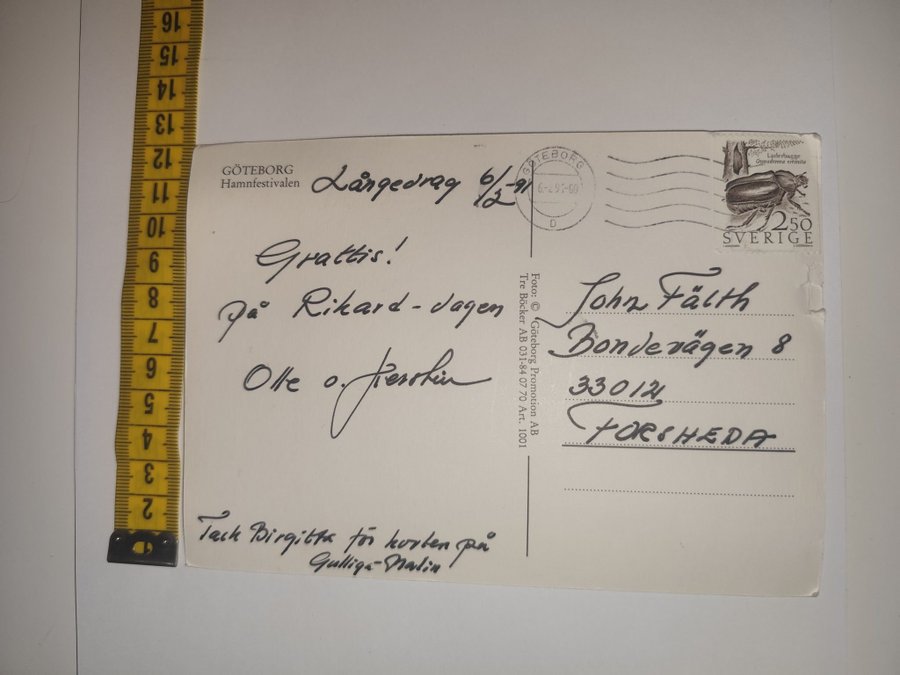 GÖTEBORG
Hamnfestivalen
Långedrag 6/2-91
Grattis!
på Rikard-dagen
Olle o.
Tack Birgitta för korten på
Gulliga-Malin
Foto: © Göteborg Promotion AB
Tre Böcker AB 031-84 07 70 Art. 1001
GÖTEBORG
6-2 91-00
D
Läderbagge
Osmoderma eremita
250
SVERIGE
John Fälth
Bondevägen 8
33012
FORSHEDA
16
15
14
13
12
11
10
9
8
7
6
5
4
3
2